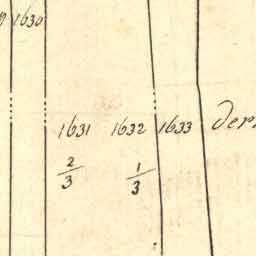 1630
1631 1632 1633 der
2/3 1/3